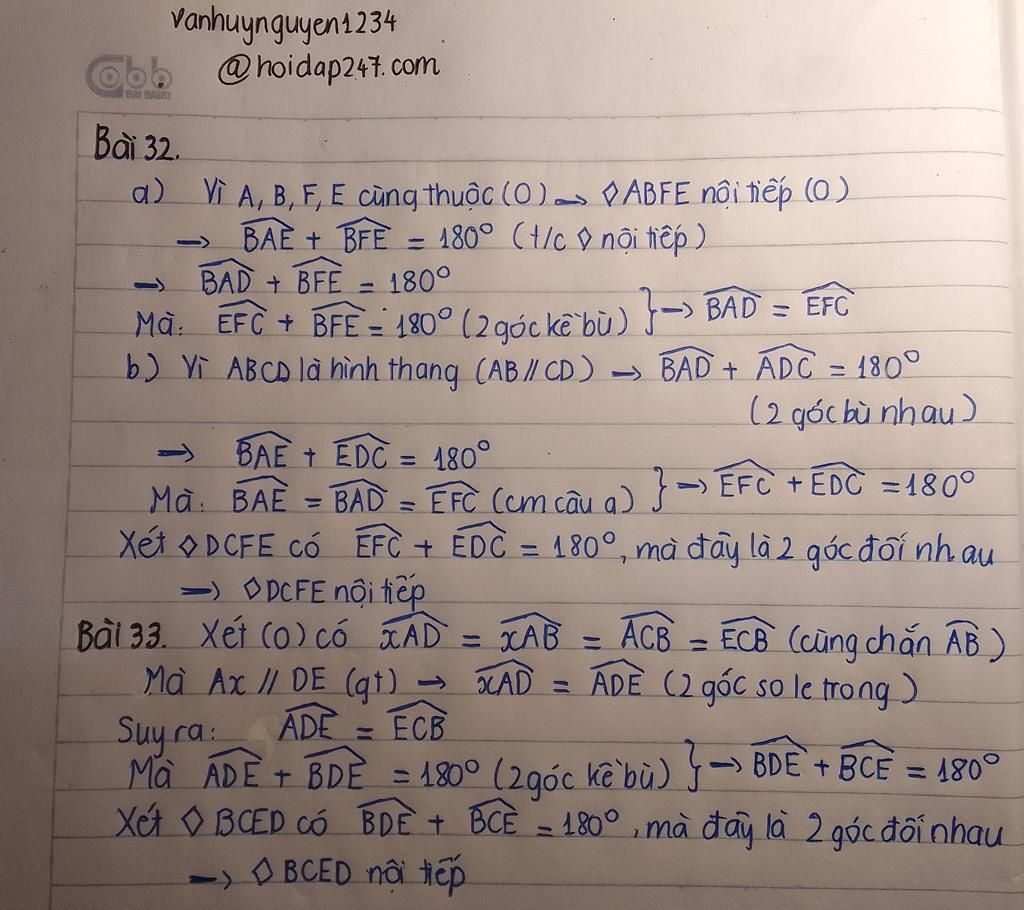 vanhuynguyen1234
@hoidap247.com
Bài 32.
a) Vì A, B, F, E cùng thuộc (O) → ◊ABFE nội tiếp (O)
→ \widehat{BAE} + \widehat{BFE} = 180° (t/c ◊ nội tiếp)
→ \widehat{BAD} + \widehat{BFE} = 180°
Mà: \widehat{EFC} + \widehat{BFE} = 180° (2 góc kề bù) } → \widehat{BAD} = \widehat{EFC}
b) Vì ABCD là hình thang (AB // CD) → \widehat{BAD} + \widehat{ADC} = 180°
(2 góc bù nhau)
→ \widehat{BAE} + \widehat{EDC} = 180°
Mà: \widehat{BAE} = \widehat{BAD} = \widehat{EFC} (cm câu a) } → \widehat{EFC} + \widehat{EDC} = 180°
Xét ◊DCFE có \widehat{EFC} + \widehat{EDC} = 180°, mà đây là 2 góc đối nhau
→ ◊DCFE nội tiếp
Bài 33. Xét (O) có \widehat{xAD} = \widehat{xAB} = \widehat{ACB} = \widehat{ECB} (cùng chắn \widehat{AB})
Mà Ax // DE (gt) → \widehat{xAD} = \widehat{ADE} (2 góc so le trong)
Suy ra: \widehat{ADE} = \widehat{ECB}
Mà \widehat{ADE} + \widehat{BDE} = 180° (2 góc kề bù) } → \widehat{BDE} + \widehat{BCE} = 180°
Xét ◊BCED có \widehat{BDE} + \widehat{BCE} = 180°, mà đây là 2 góc đối nhau
→ ◊BCED nội tiếp